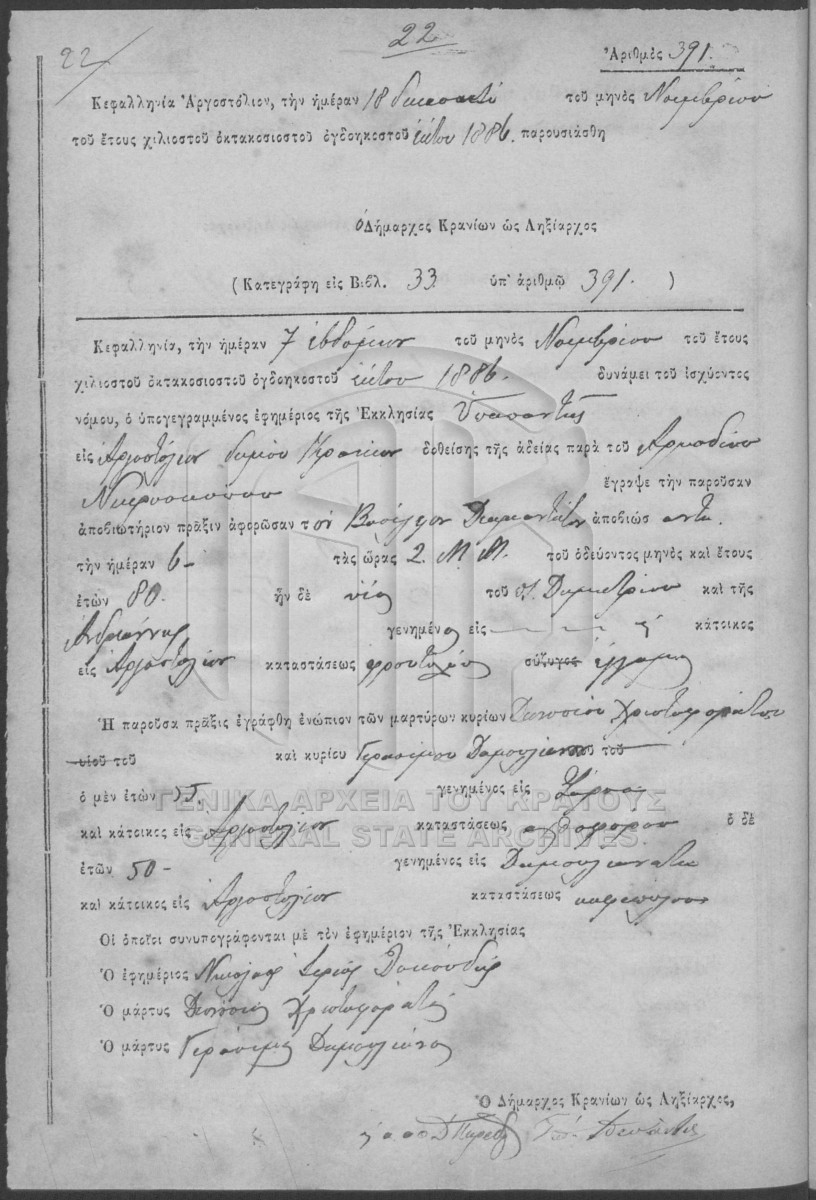 22
22
Ἀριθμὸς 391.
Κεφαλληνία Ἀργοστόλιον, τὴν ἡμέραν 18 του μηνὸς Νοεμβρίου
τοῦ ἔτους χιλιοστοῦ ὀκτακοσιοστοῦ ὀγδοηκοστοῦ ἕκτου 1886. παρουσιάσθη
ὁ Δήμαρχος Κρανίων ὡς Ληξίαρχος
(Κατεγράφη εἰς Βιβλ. 33 ὑπ' ἀριθμῷ 391. )
Κεφαλληνία, τὴν ἡμέραν 7 ἑβδόμην τοῦ μηνὸς Νοεμβρίου τοῦ ἔτους
χιλιοστοῦ ὀκτακοσιοστοῦ ὀγδοηκοστοῦ ἕκτου 1886. δυνάμει τοῦ ἰσχύοντος
νόμου, ὁ ὑπογεγραμμένος ἐφημέριος τῆς Ἐκκλησίας Ὑπαπαντῆς
εἰς Ἀργοστόλιον δήμου Κρανίων δοθείσης τῆς ἀδείας παρὰ τοῦ Ἁρμοδίου
Νεκροσκόπου ἔγραψε τὴν παροῦσαν
ἀποβιωτήριον πρᾶξιν ἀφορῶσαν τὸν Βασίλειον ἀποβιώσ αντα.
τὴν ἡμέραν 6- τὰς ὥρας 2. Μ.Μ. τοῦ ὁδεύοντος μηνὸς καὶ ἔτους
ἐτῶν 80. ἦν δὲ υἱὸς τοῦ Δημητρίου καὶ τῆς
γενημένος εἰς κάτοικος
εἰς Ἀργοστόλιον καταστάσεως σύζυγος ἔγγαμος
Ἡ παροῦσα πρᾶξις ἐγράφθη ἐνώπιον τῶν μαρτύρων κυρίων Διονυσίου Χριστοφοράτου
υἱοῦ τοῦ καὶ κυρίου Γερασίμου Δαμουλιάνου τοῦ
ὁ μὲν ἐτῶν 55. γενημένος εἰς
ΓΕΝΙΚΑ ΑΡΧΕΙΑ ΤΟΥ ΚΡΑΤΟΥΣ
καὶ κάτοικος εἰς Ἀργοστόλιον καταστάσεως ὁ δὲ
GENERAL STATE ARCHIVES
ἐτῶν 50- γενημένος εἰς Δαμουλιανάτα
καὶ κάτοικος εἰς Ἀργοστόλιον καταστάσεως
Οἱ ὁποῖοι συνυπογράφονται μὲ τὸν ἐφημέριον τῆς Ἐκκλησίας
Ὁ ἐφημέριος Νικόλαος Ἱερεὺς
Ὁ μάρτυς Διονύσιος Χριστοφοράτος
Ὁ μάρτυς Γεράσιμος Δαμουλιάνος
Ὁ Δήμαρχος Κρανίων ὡς Ληξίαρχος,